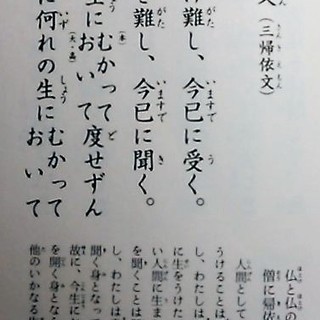 文（三帰依文）
難し、今已に受く。
難し、今已に聞く。
生に むかって おいて 度せずん
に何れの生に むかって おいて
仏と仏の
僧に帰依
人間として
うけることは
し、わたしは
に生をうけた
い人間に生ま
を聞くことは
し、わたしは
聞く身となっ
故に、今生に
を開く身とな
他のいかなる